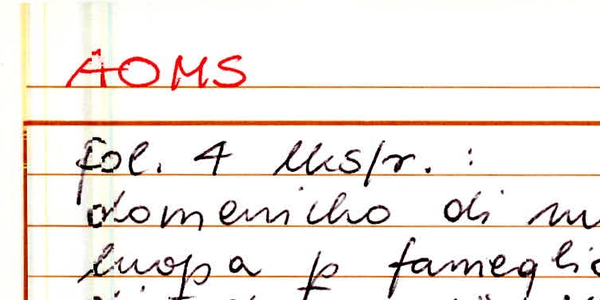 AOMS
fol. 4 lks/r. :
domenicho di
luopa p fameglio